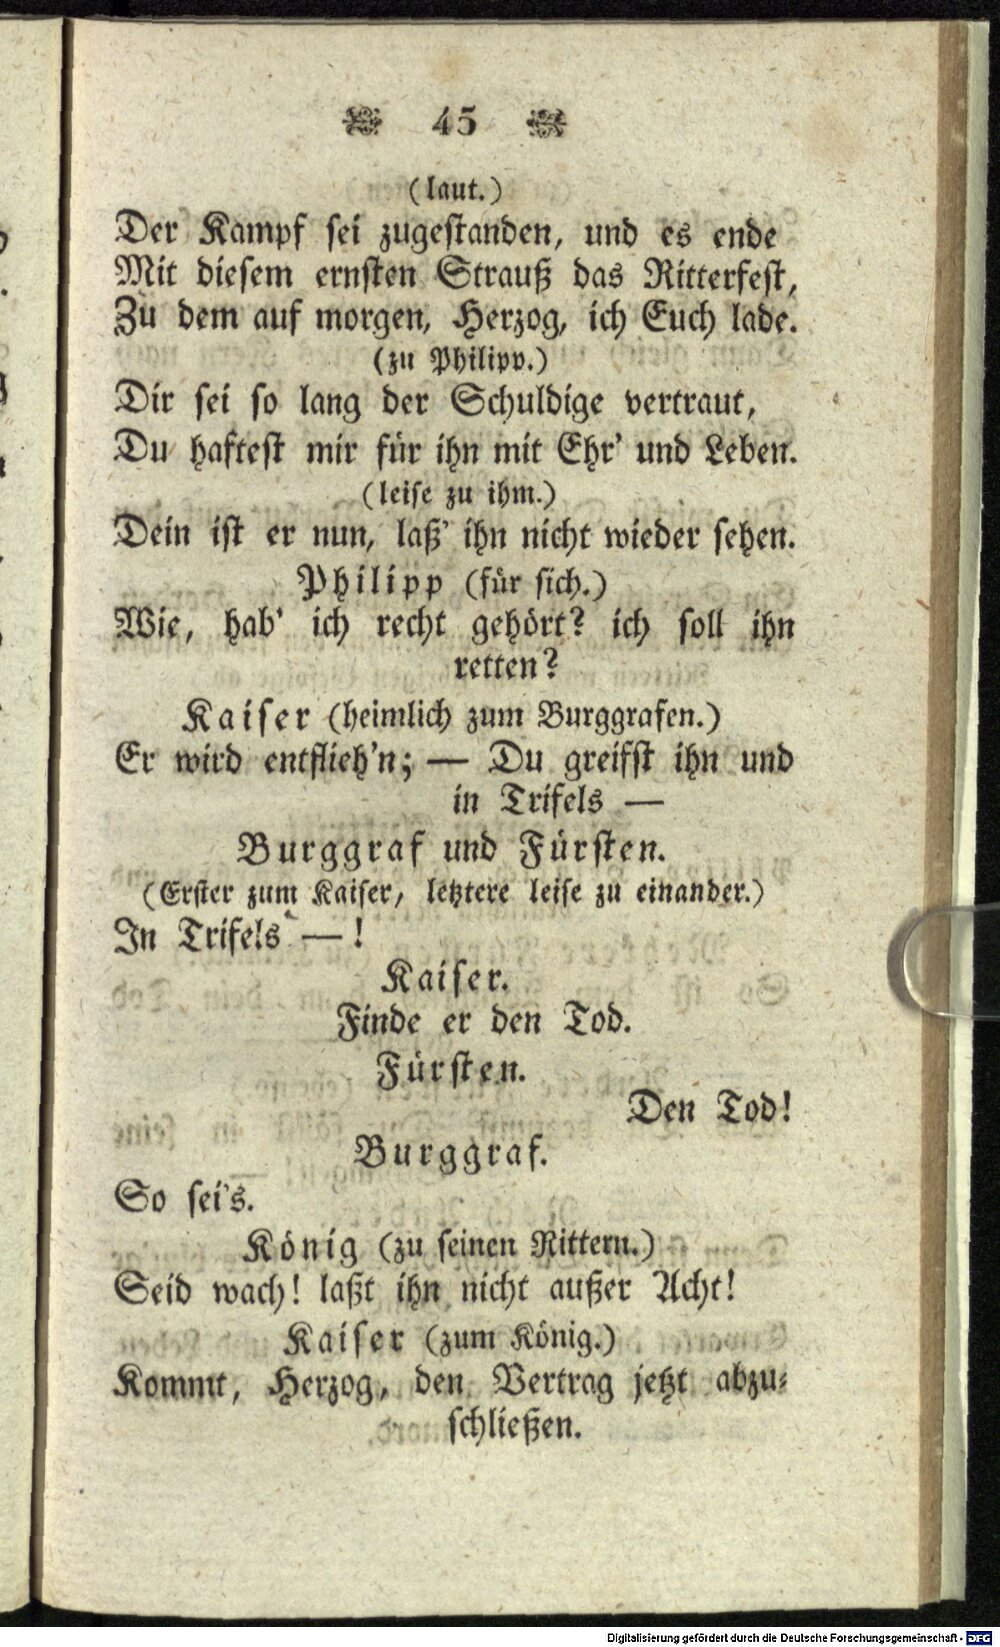 45
(laut.)
Der Kampf sei zugestanden, und es ende
Mit diesem ernsten Strauß das Ritterfest,
Zu dem auf morgen, Herzog, ich Euch lade.
(zu Philipp.)
Dir sei so lang der Schuldige vertraut,
Du haftest mir für ihn mit Ehr' und Leben.
(leise zu ihm.)
Dein ist er nun, laß' ihn nicht wieder sehen.
Philipp (für sich.)
Wie, hab' ich recht gehört? ich soll ihn
retten?
Kaiser (heimlich zum Burggrafen.)
Er wird entflieh'n; — Du greifst ihn und
in Trifels —
Burggraf und Fürsten.
(Erster zum Kaiser, letztere leise zu einander.)
In Trifels — !
Kaiser.
Finde er den Tod.
Fürsten.
Den Tod!
Burggraf.
So sei's.
König (zu seinen Rittern.)
Seid wach! laßt ihn nicht außer Acht!
Kaiser (zum König.)
Kommt, Herzog, den Vertrag jetzt abzu-
schließen.
Digitalisierung gefördert durch die Deutsche Forschungsgemeinschaft - DFG